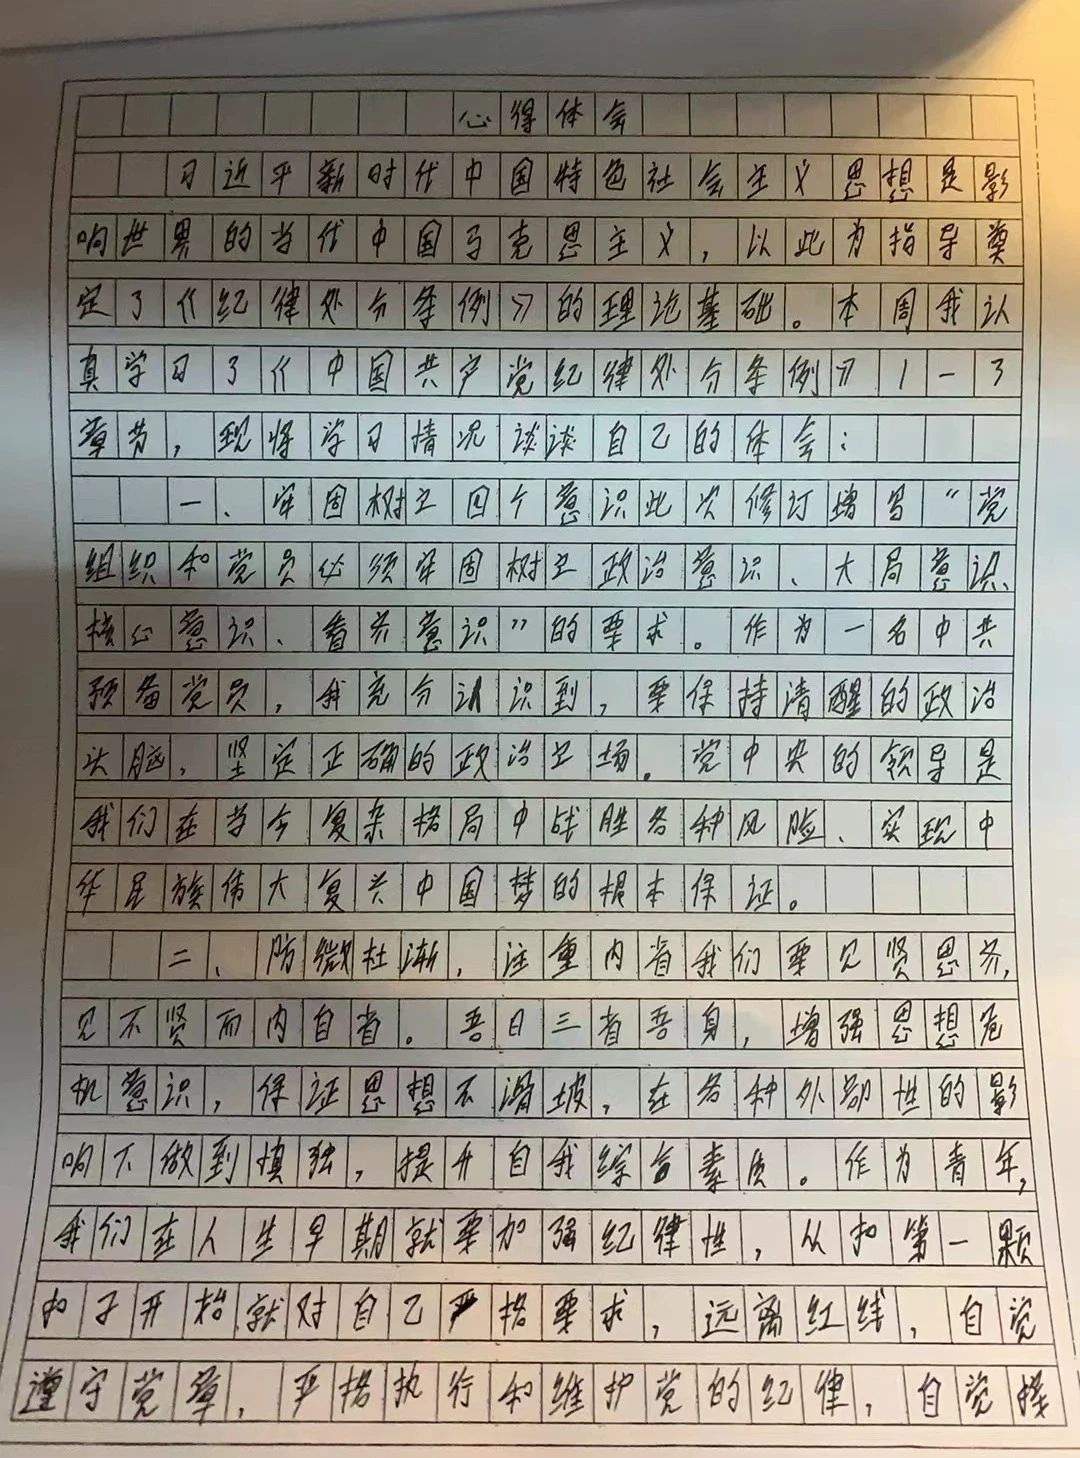 心得体会
习近平新时代中国特色社会主义思想是影
响世界的当代中国马克思主义，以此为指导奠
定了《纪律处分条例》的理论基础。本周我认
真学习了《中国共产党纪律处分条例》1—3
章节，现将学习情况谈谈自己的体会：
一、牢固树立四个意识此次修订增写“党
组织和党员必须牢固树立政治意识、大局意识、
核心意识、看齐意识”的要求。作为一名中共
预备党员，我充分认识到，要保持清醒的政治
头脑，坚定正确的政治立场。党中央的领导是
我们在当今复杂格局中战胜各种风险、实现中
华民族伟大复兴中国梦的根本保证。
二、防微杜渐，注重内省我们要见贤思齐，
见不贤而内自省。吾日三省吾身，增强思想危
机意识，保证思想不滑坡，在各种外部性的影
响下做到慎独，提升自我综合素质。作为青年，
我们在人生早期就要加强纪律性，从扣第一颗
扣子开始就对自己严格要求，远离红线，自觉
遵守党章，严格执行和维护党的纪律，自觉接